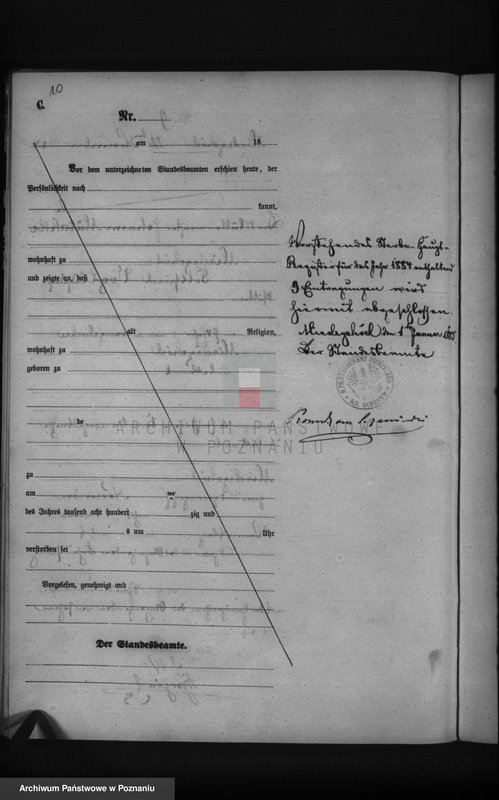 10
C.
Nr.
am 18
Vor dem unterzeichneten Standesbeamten erschien heute, der
Persönlichkeit nach
kannt,
wohnhaft zu
und zeigte an, daß
alt Religion,
wohnhaft zu
geboren zu
de
zu
am ten
des Jahres tausend acht hundert zig und
s um Uhr
verstorben sei
Vorgelesen, genehmigt und
Der Standesbeamte.
Vorstehendes Sterbe-Haupt-
Register für das Jahr 1884 enthaltend
9 Eintragungen wird
hiermit abgeschlossen.
den 1ten Januar 1885
Der Standesbeamte
ARCHIWUM PAŃSTWOWE
W POZNANIU
Archiwum Państwowe w Poznaniu